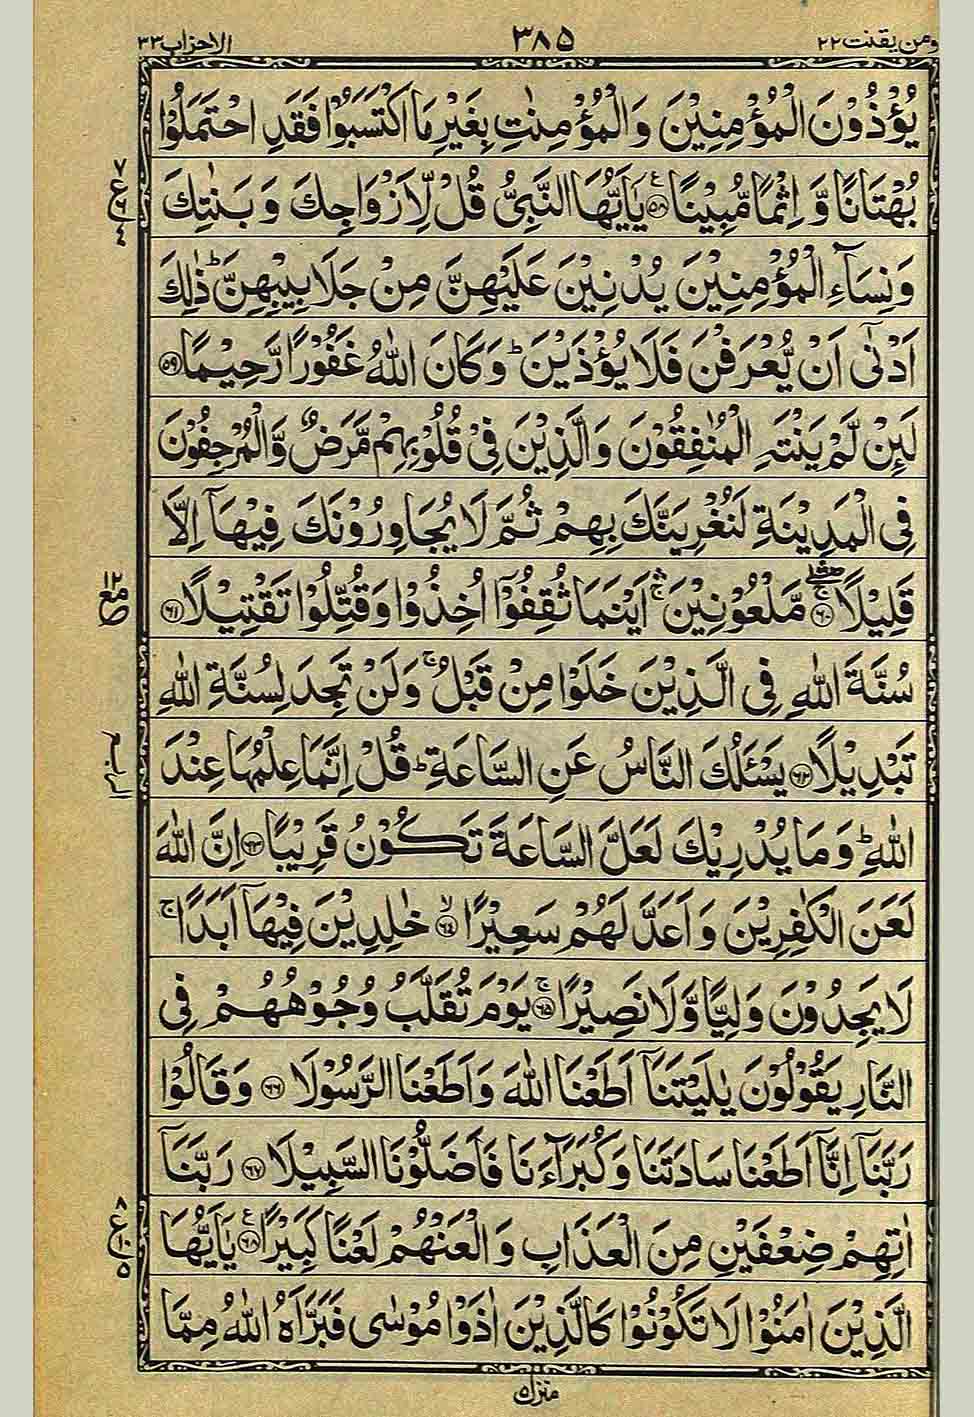 ومن يقنت ٢٢ ٣٨٥ الاحزاب ٣٣
يُؤْذُوْنَ الْمُؤْمِنِيْنَ وَالْمُؤْمِنٰتِ بِغَيْرِ مَا اكْتَسَبُوْا فَقَدِ احْتَمَلُوْا
بُهْتَانًا وَّ اِثْمًا مُّبِيْنًا ۝٥٨ ع يٰۤاَيُّهَا النَّبِىُّ قُلْ لِّاَزْوَاجِكَ وَ بَنٰتِكَ
وَنِسَآءِ الْمُؤْمِنِيْنَ يُدْنِيْنَ عَلَيْهِنَّ مِنْ جَلَابِيْبِهِنَّ ؕ ذٰلِكَ
اَدْنٰۤى اَنْ يُّعْرَفْنَ فَلَا يُؤْذَيْنَ ؕ وَكَانَ اللّٰهُ غَفُوْرًا رَّحِيْمًا ۝٥٩
لَئِنْ لَّمْ يَنْتَهِ الْمُنٰفِقُوْنَ وَالَّذِيْنَ فِىْ قُلُوْبِهِمْ مَّرَضٌ وَّالْمُرْجِفُوْنَ
فِى الْمَدِيْنَةِ لَنُغْرِيَنَّكَ بِهِمْ ثُمَّ لَا يُجَاوِرُوْنَكَ فِيْهَاۤ اِلَّا
قَلِيْلًا ۝٦٠ ۛۚ مَّلْعُوْنِيْنَ ۛۚ اَيْنَمَا ثُقِفُوْۤا اُخِذُوْا وَقُتِّلُوْا تَقْتِيْلًا ۝٦١
سُنَّةَ اللّٰهِ فِى الَّذِيْنَ خَلَوْا مِنْ قَبْلُ ۚ وَلَنْ تَجِدَ لِسُنَّةِ اللّٰهِ
تَبْدِيْلًا ۝٦٢ يَسْـَٔلُكَ النَّاسُ عَنِ السَّاعَةِ ؕ قُلْ اِنَّمَا عِلْمُهَا عِنْدَ
اللّٰهِ ؕ وَمَا يُدْرِيْكَ لَعَلَّ السَّاعَةَ تَكُوْنُ قَرِيْبًا ۝٦٣ اِنَّ اللّٰهَ
لَعَنَ الْكٰفِرِيْنَ وَاَعَدَّ لَهُمْ سَعِيْرًا ۝٦٤ ۙ خٰلِدِيْنَ فِيْهَاۤ اَبَدًا ۚ
لَا يَجِدُوْنَ وَلِيًّا وَّلَا نَصِيْرًا ۝٦٥ ۚ يَوْمَ تُقَلَّبُ وُجُوْهُهُمْ فِى
النَّارِ يَقُوْلُوْنَ يٰلَيْتَنَاۤ اَطَعْنَا اللّٰهَ وَاَطَعْنَا الرَّسُوْلَا ۝٦٦ وَقَالُوْا
رَبَّنَاۤ اِنَّاۤ اَطَعْنَا سَادَتَنَا وَكُبَرَآءَنَا فَاَضَلُّوْنَا السَّبِيْلَا ۝٦٧ رَبَّنَاۤ
اٰتِهِمْ ضِعْفَيْنِ مِنَ الْعَذَابِ وَالْعَنْهُمْ لَعْنًا كَبِيْرًا ۝٦٨ ع يٰۤاَيُّهَا
الَّذِيْنَ اٰمَنُوْا لَا تَكُوْنُوْا كَالَّذِيْنَ اٰذَوْا مُوْسٰى فَبَرَّاَهُ اللّٰهُ مِمَّا
منزل ٥